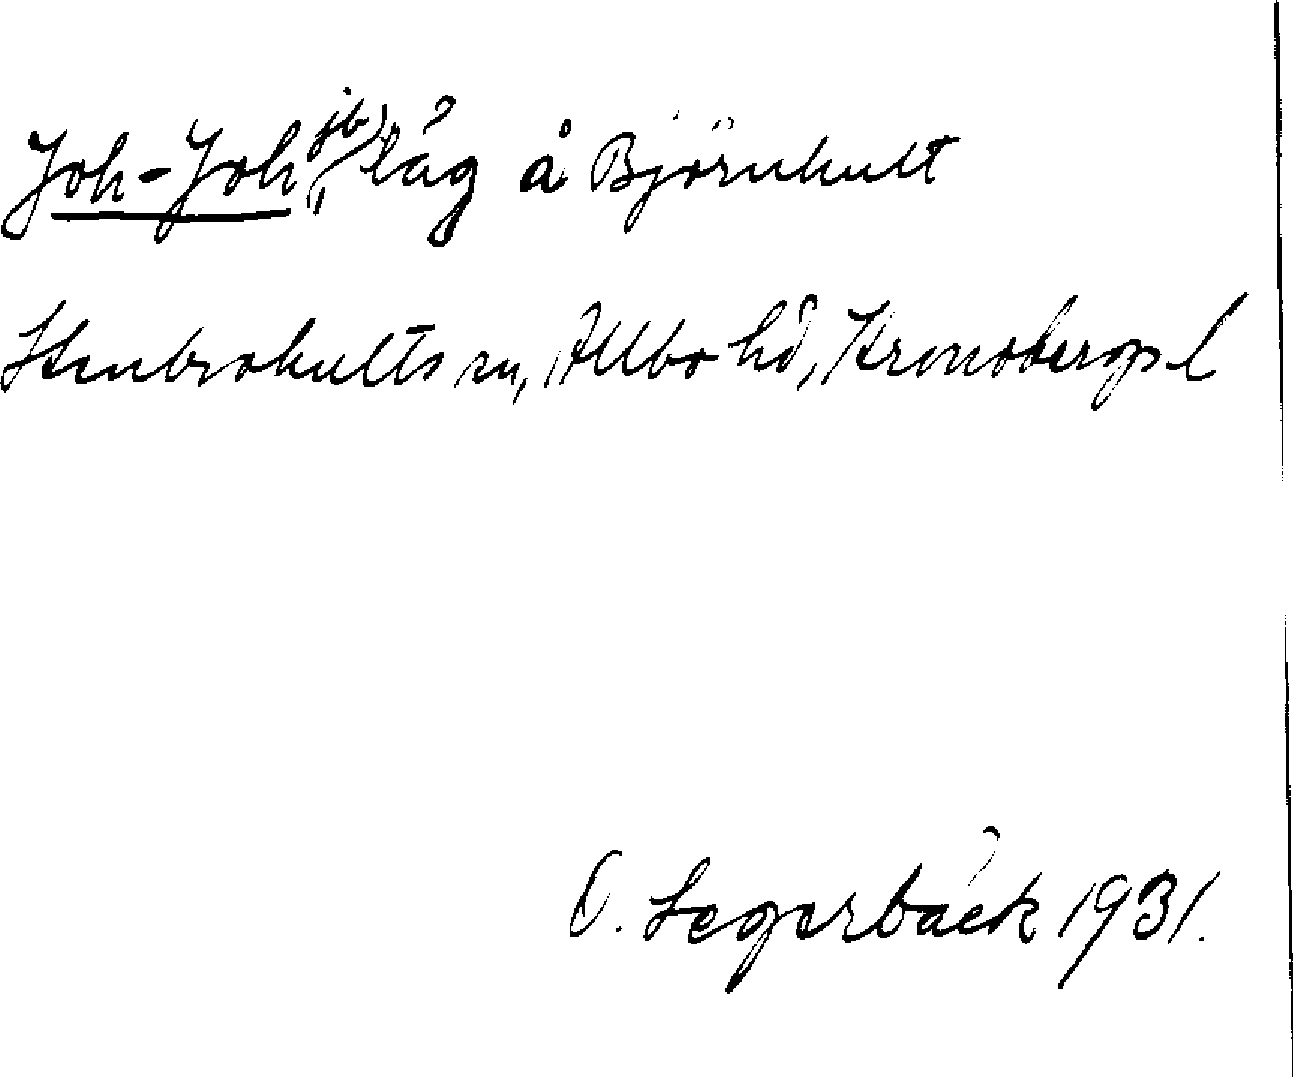 Joh-Joh, jb, låg å Björnhult
Stenbrohults sn, Allbo hd, Kronobergs l
O. Segerbäck 1931.